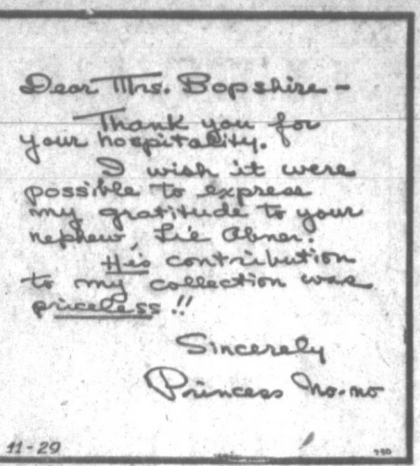 Dear Mrs. Bopshire -
Thank you for
your hospitality.
I wish it were
possible to express
my gratitude to your
nephew, Li'l Abner.
His contribution
to my collection was
priceless!!
Sincerely
Princess No-no
11-29